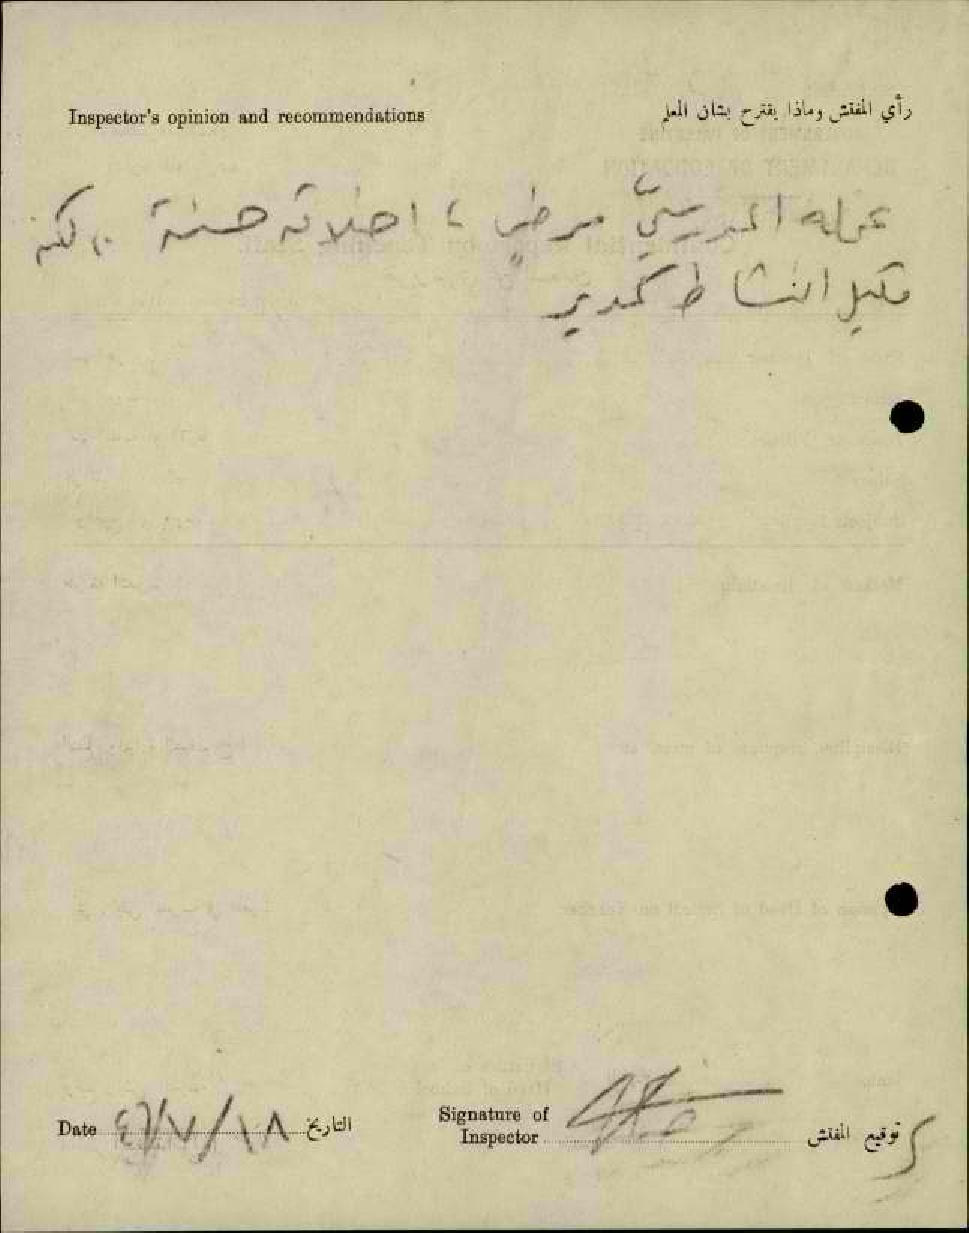 Inspector's opinion and recommendations
رأي المفتش وماذا يقترح بشان المعلم
عمله المدرسي مرضٍ ، اخلاقه حسنة ، لكنه
قليل النشاط كمدير
Date ١٨/٧/٤٦ التاريخ
Signature of Inspector
توقيع المفتش